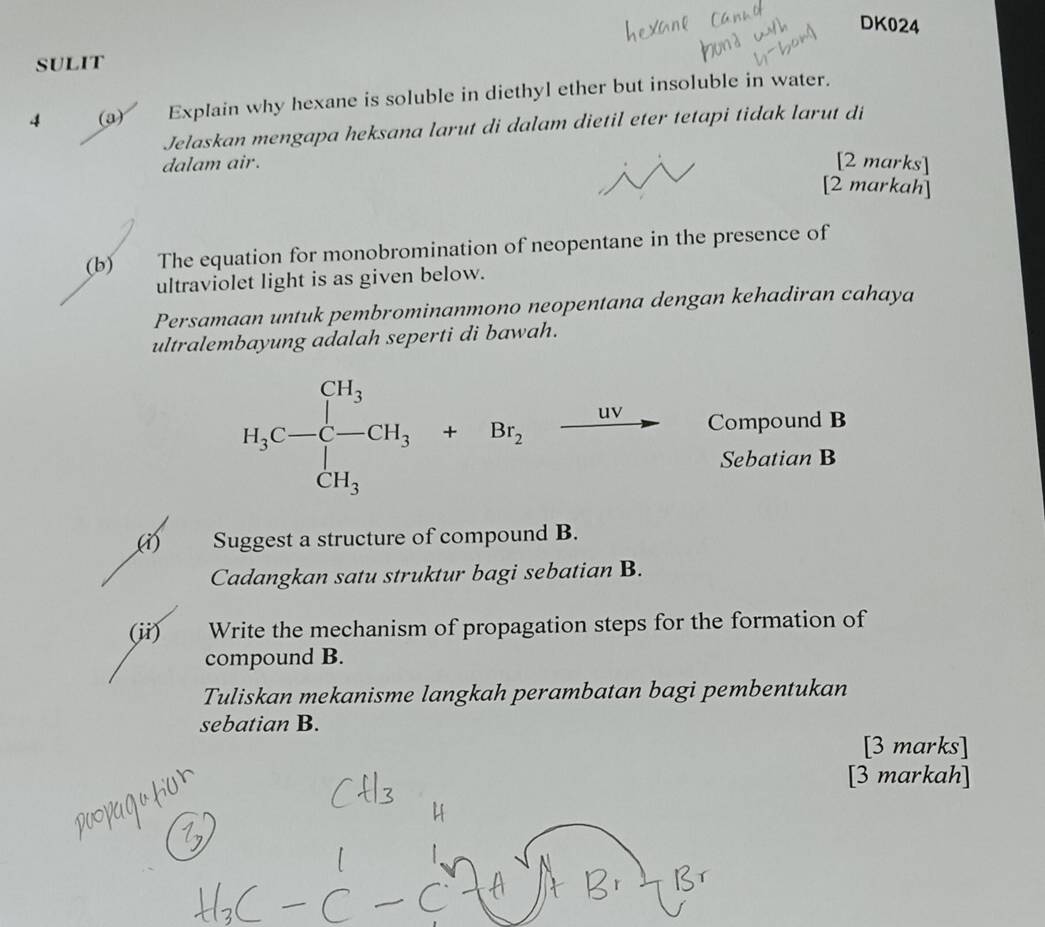 hexane cannot
bond with
H-bond
DK024
SULIT
4 (a) Explain why hexane is soluble in diethyl ether but insoluble in water.
Jelaskan mengapa heksana larut di dalam dietil eter tetapi tidak larut di
dalam air.
[2 marks]
[2 markah]
(b) The equation for monobromination of neopentane in the presence of
ultraviolet light is as given below.
Persamaan untuk pembrominanmono neopentana dengan kehadiran cahaya
ultralembayung adalah seperti di bawah.
CH₃
H₃C—C—CH₃ + Br₂ uv Compound B
CH₃ Sebatian B
(i) Suggest a structure of compound B.
Cadangkan satu struktur bagi sebatian B.
(ii) Write the mechanism of propagation steps for the formation of
compound B.
Tuliskan mekanisme langkah perambatan bagi pembentukan
sebatian B.
[3 marks]
[3 markah]
propagation
CH3 H
H₃C - C - C H + Br Br